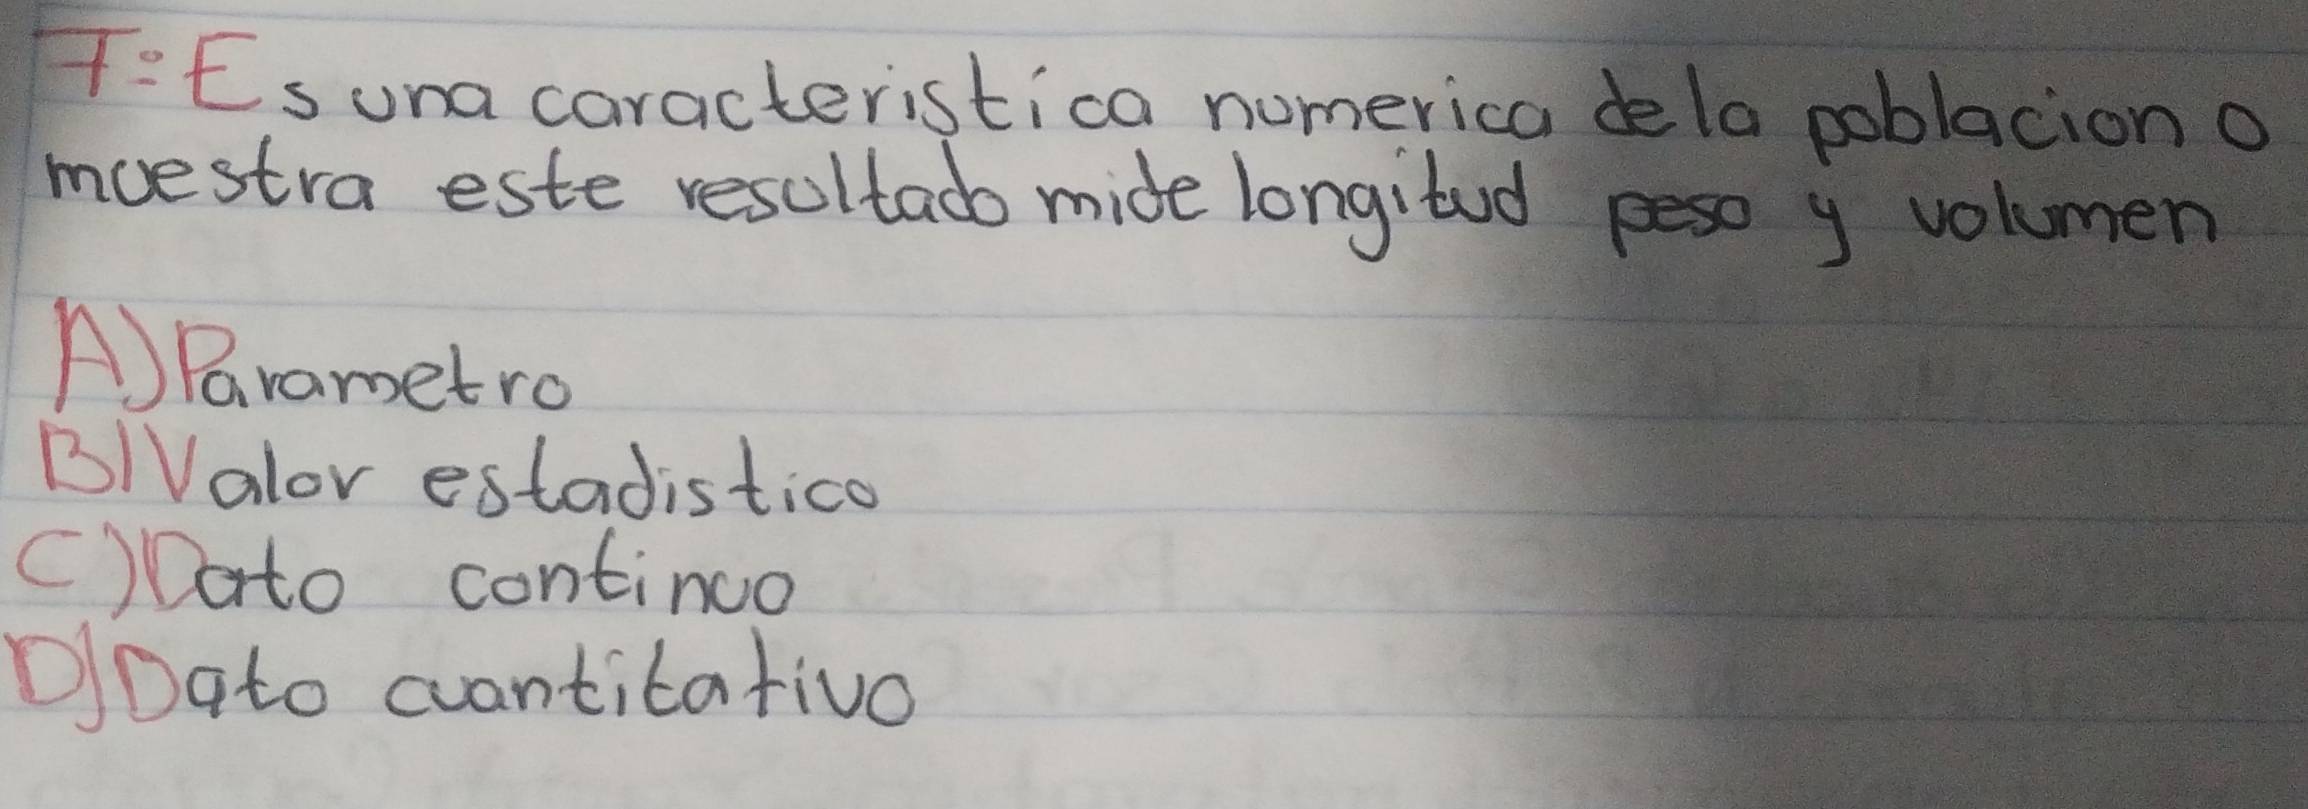 7=Es una caracteristica numerica dela poblacion o
muestra este resultado mide longitud peso y volumen
A) Parametro
B) Valor estadistico
C) Dato continuo
D) Dato cuantitativo